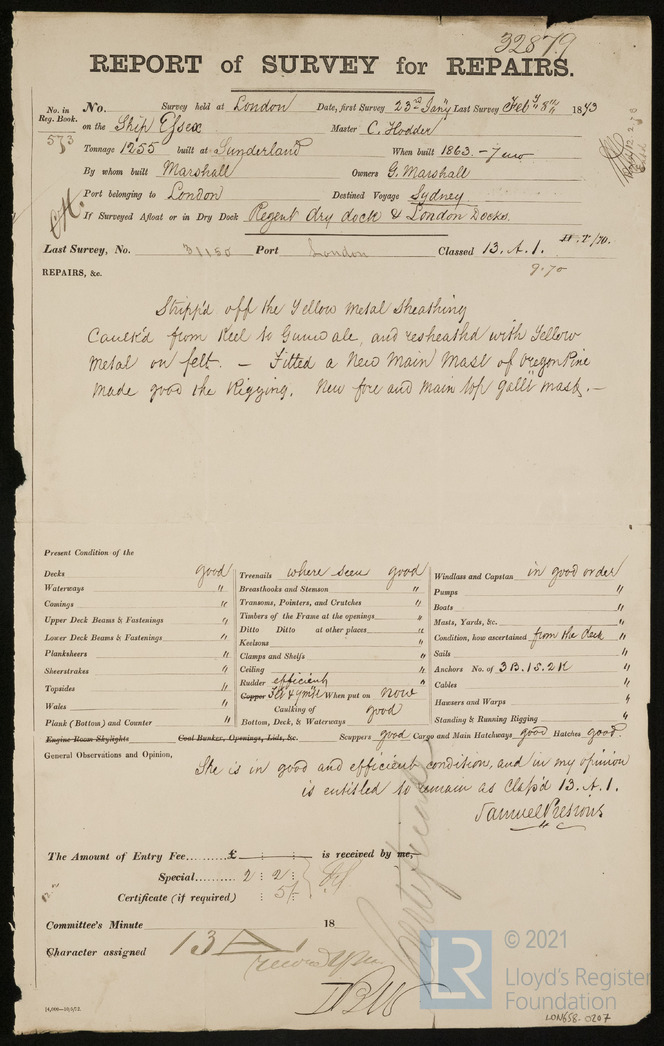 32879
REPORT of SURVEY for REPAIRS.
No. in Reg. Book. No. Survey held at London Date, first Survey 23rd Jany Last Survey Feby 8th 1873
573 on the Ship Essex Master C. Hodder
Tonnage 1255 built at Sunderland When built 1863 - 7 mo
By whom built Marshall Owners G. Marshall
Port belonging to London Destined Voyage Sydney
If Surveyed Afloat or in Dry Dock Regent dry dock & London Docks.
Last Survey, No. 31150 Port London Classed 13. A. 1.
9.70
REPAIRS, &c.
Stripp'd off the Yellow Metal Sheathing
Caulk'd from Keel to Gunwale, and resheathd with Yellow
Metal on felt. — Fitted a New Main Mast of Oregon Pine
Made good the Rigging. New fore and main top gallt masts. —
Present Condition of the
Decks good
Waterways "
Comings "
Upper Deck Beams & Fastenings "
Lower Deck Beams & Fastenings "
Planksheers "
Sheerstrakes "
Topsides "
Wales "
Plank (Bottom) and Counter "
Treenails where seen good
Breasthooks and Stemson "
Transoms, Pointers, and Crutches "
Timbers of the Frame at the openings "
Ditto Ditto at other places "
Keelsons "
Clamps and Shelfs "
Ceiling "
Rudder efficient
Copper Felt & YM When put on Now
Caulking of Bottom, Deck, & Waterways good
Windlass and Capstan in good order
Pumps "
Boats "
Masts, Yards, &c. "
Condition, how ascertained from the deck "
Sails "
Anchors No. of 3B. 1S. 2K "
Cables "
Hawsers and Warps "
Standing & Running Rigging "
Engine Room Skylights Coal Bunker, Openings, Lids, &c. Scuppers good Cargo and Main Hatchways good Hatches good
General Observations and Opinion,
She is in good and efficient condition, and in my opinion
is entitled to remain as Class'd 13. A. 1.
Samuel Pressous
The Amount of Entry Fee......£ : : is received by me,
Special......... 2 : 2 :
Certificate (if required) : 5/- :
Certificate
Committee's Minute 18
Character assigned 13 A 1
14,000—10/9/72.
LR
© 2021
Lloyd's Register
Foundation
LON658-0207